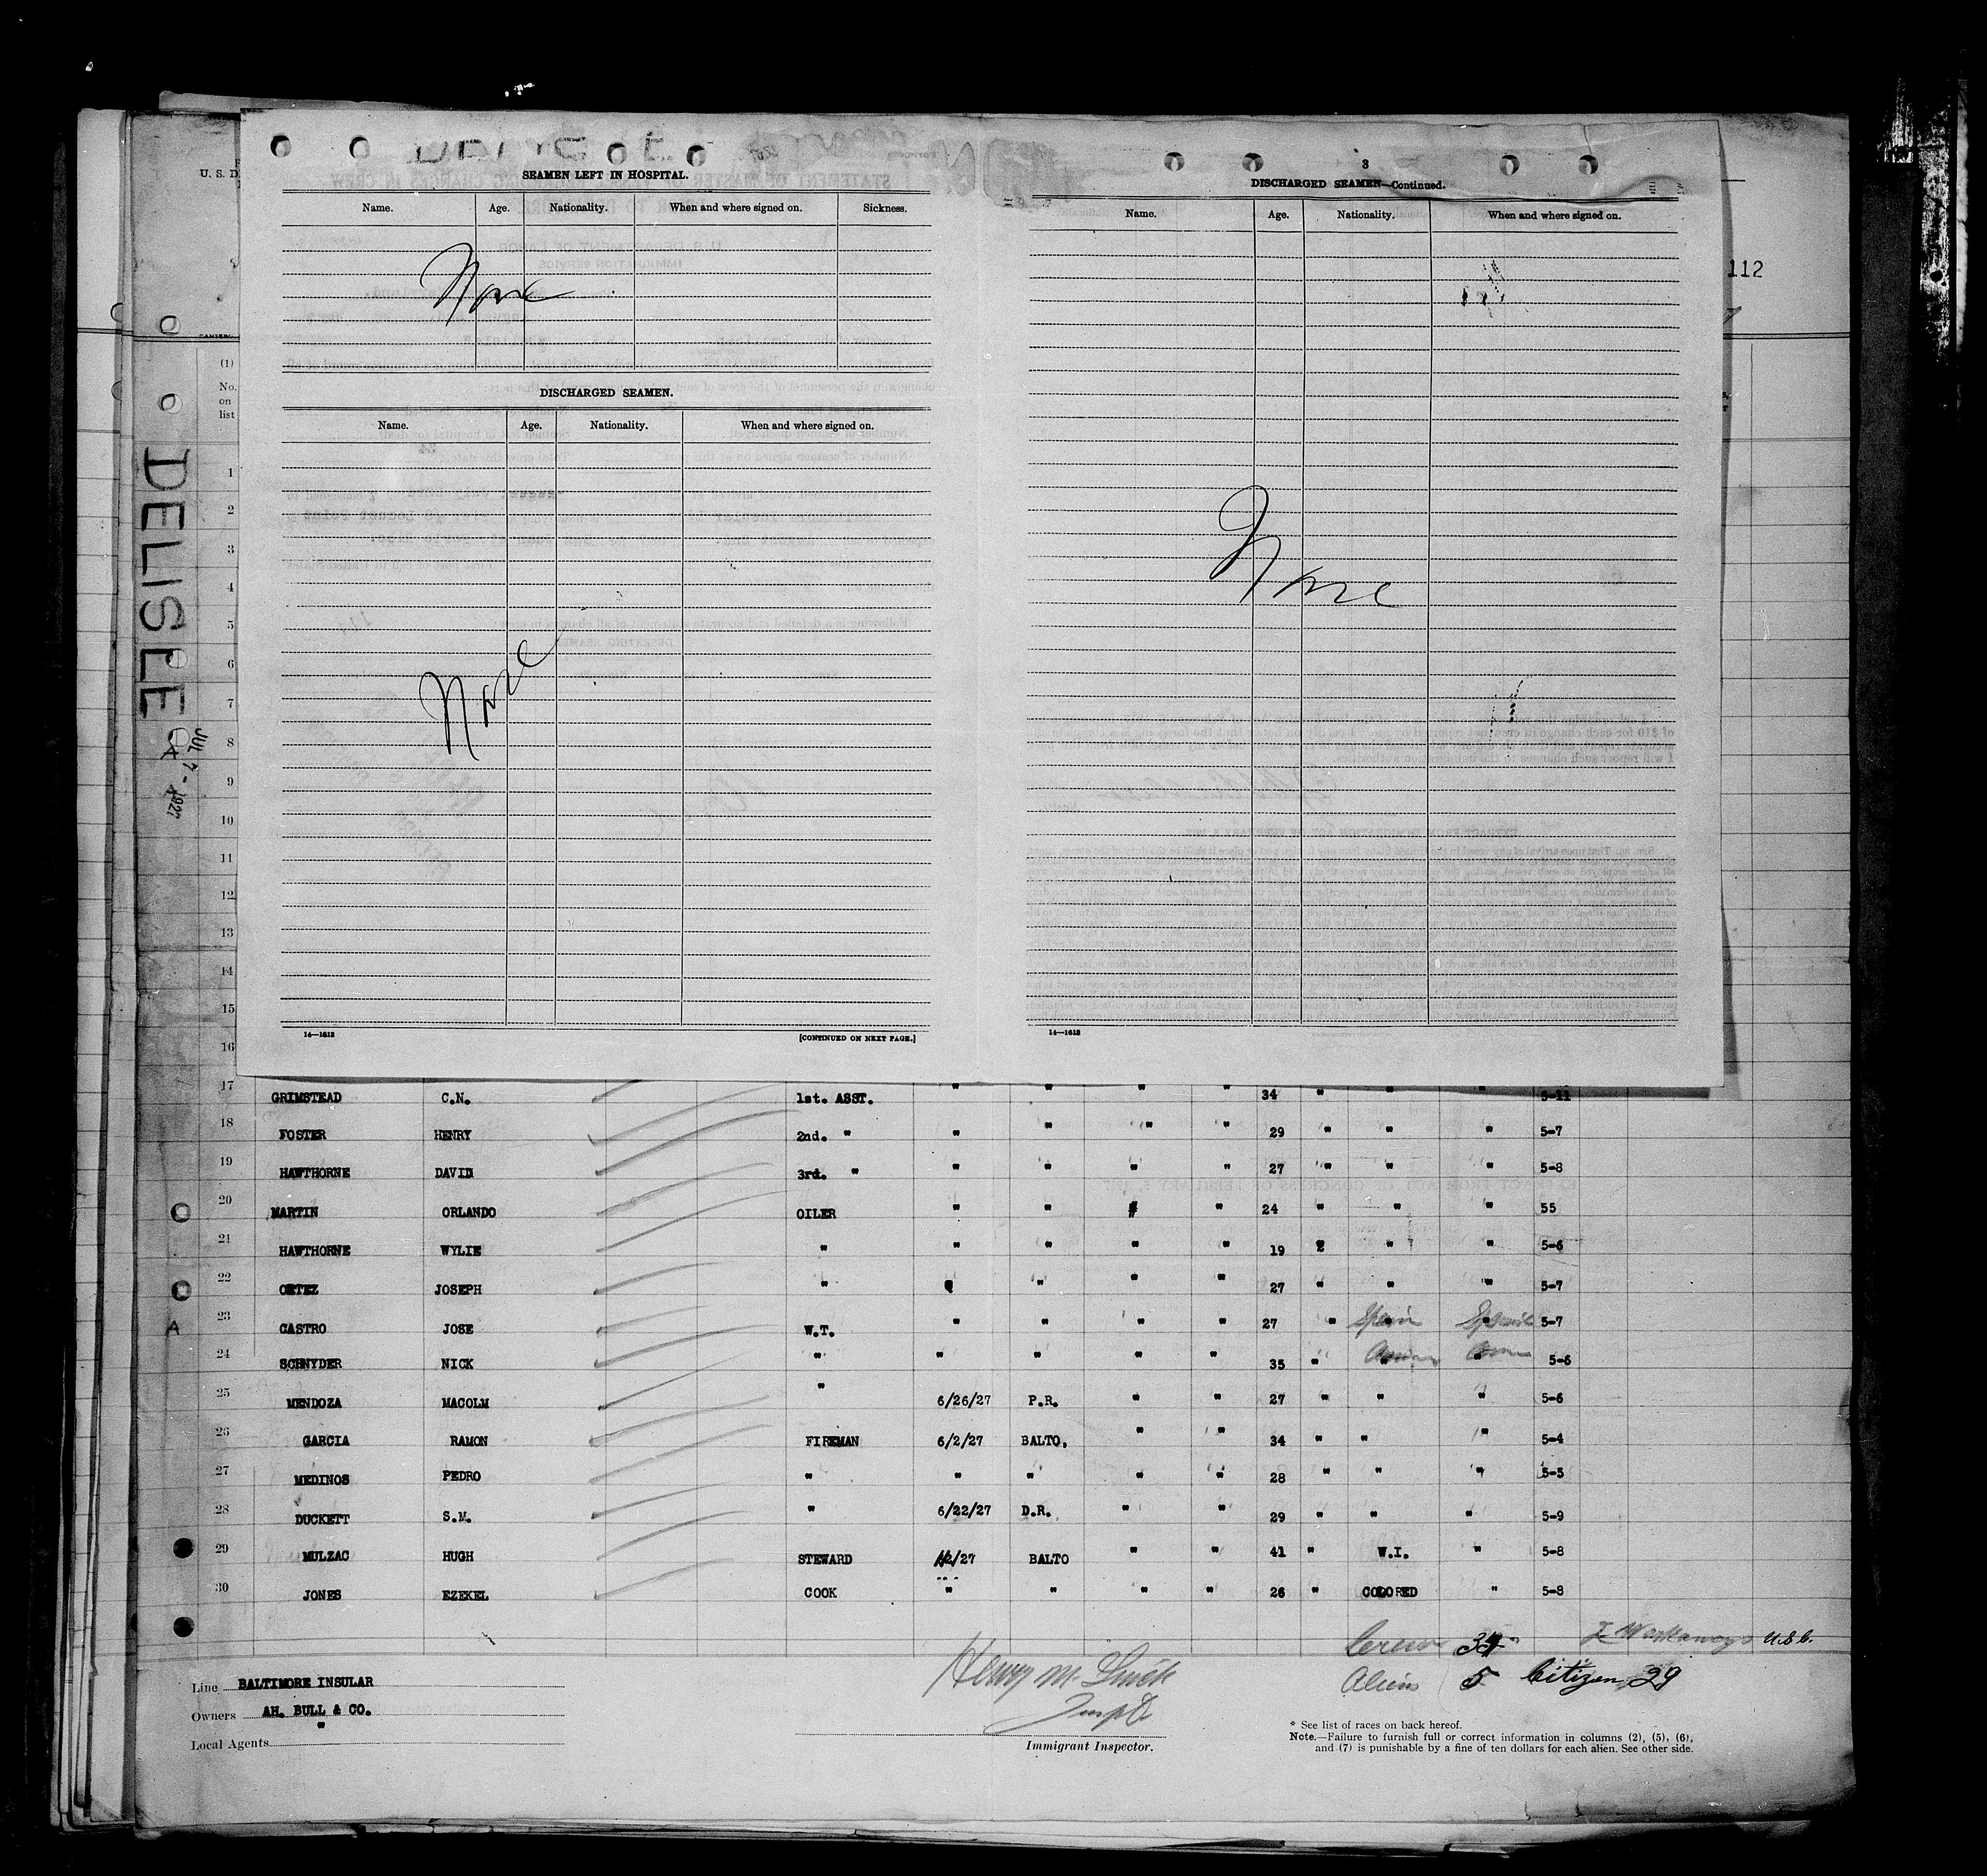 SEAMEN LEFT IN HOSPITAL.
Name. Age. Nationality. When and where signed on. Sickness.
None
DISCHARGED SEAMEN.
Name. Age. Nationality. When and where signed on.
None
14—1613 [CONTINUED ON NEXT PAGE.]
3
DISCHARGED SEAMEN—Continued.
Name. Age. Nationality. When and where signed on.
None
14—1613
112
U. S. D
(1)
No.
on
list
DELISLE
JUL 7 - 1927
A
1
2
3
4
5
6
7
8
9
10
11
12
13
14
15
16
17 GRIMSTEAD C.N. 1st. ASST. " " " " 34 " " " 5-11
18 FOSTER HENRY 2nd. " " " " " 29 " " " 5-7
19 HAWTHORNE DAVID 3rd. " " " " " 27 " " " 5-8
20 MARTIN ORLANDO OILER " " " " 24 " " " 55
21 HAWTHORNE WYLIE " " " " " 19 2 " " 5-6
22 ORTEZ JOSEPH " " " " 27 " " " 5-7
A 23 CASTRO JOSE W.T. " " " " 27 " Spain Spanish 5-7
24 SCHNYDER NICK " " " " " 35 " " 5-6
25 MENDOZA MACOLM " 6/26/27 P.R. " " 27 " " " 5-6
26 GARCIA RAMON FIREMAN 6/2/27 BALTO. " " 34 " " " 5-4
27 MEDINOS PEDRO " " " " " 28 " " " 5-5
28 DUCKETT S.M. " 6/22/27 D.R. " " 29 " " " 5-9
29 MULZAC HUGH STEWARD /27 BALTO " " 41 " W.I. " 5-8
30 JONES EZEKEL COOK " " " " 26 " COLORED " 5-8
Crew 34 2 Workaways U.S.C.
Aliens 5 Citizen 29
Line BALTIMORE INSULAR
Owners AH. BULL & CO.
"
Local Agents
Henry M.
Insptr
Immigrant Inspector.
* See list of races on back hereof.
Note.—Failure to furnish full or correct information in columns (2), (5), (6),
and (7) is punishable by a fine of ten dollars for each alien. See other side.